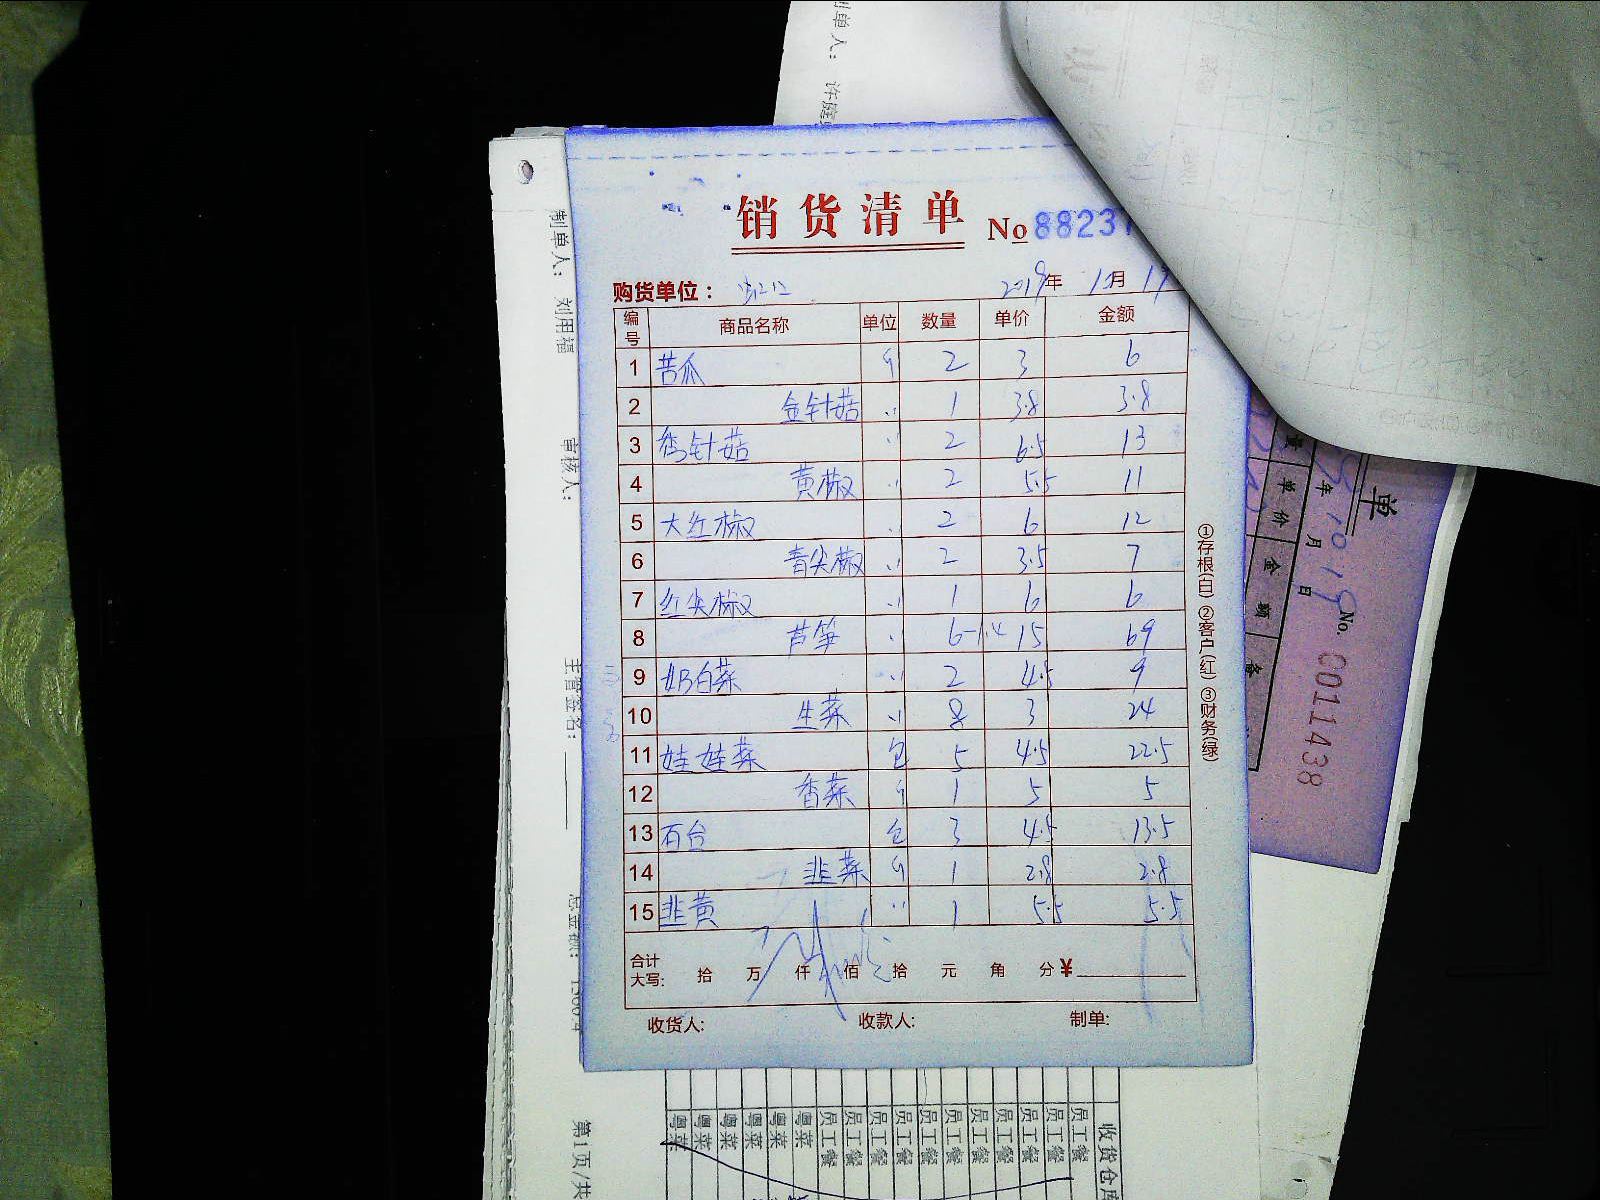 销货清单 No 88237
购货单位： 2019年 10月 19
编号 商品名称 单位 数量 单价 金额
1 苦瓜 斤 2 3 6
2 金针菇 〃 1 3.8 3.8
3 秀针菇 〃 2 6.5 13
4 黄椒 〃 2 5.5 11
5 大红椒 〃 2 6 12
6 青尖椒 〃 2 3.5 7
7 红尖椒 〃 1 6 6
8 芦笋 〃 6-1.4 15 69
9 奶白菜 〃 2 4.5 9
10 生菜 〃 8 3 24
11 娃娃菜 包 5 4.5 22.5
12 香菜 斤 1 5 5
13 石台 仓 3 4.5 13.5
14 韭菜 斤 1 2.8 2.8
15 韭黄 〃 1 5.5 5.5
合计大写: 拾 万 仟 佰 拾 元 角 分 ¥
收货人: 收款人: 制单:
①存根(白) ②客户(红) ③财务(绿)
制单人： 刘用福
审核人：
主管签名：
总金额：
第1页/共
制单人： 许庭
单
年 10 月 19 日
No. 0011438
单价 金额 备
收货仓库
员工餐
员工餐
员工餐
员工餐
员工餐
员工餐
员工餐
员工餐
员工餐
员工餐
员工餐
粤菜
粤菜
粤菜
粤菜
粤菜
粤菜